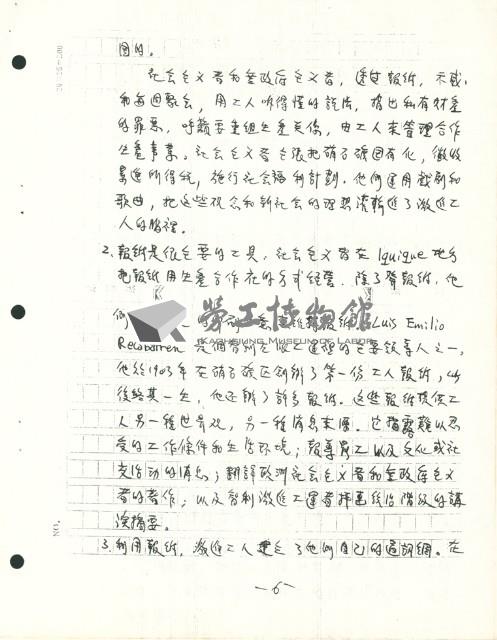 因的。
社会主义者和無政府主义者，透过報纸，示威
和每週聚会，用工人听得懂的說法，指出私有財產
的罪惡，呼籲要重組生產关係，由工人來管理合作
生產事業。社会主义者主張把硝石礦国有化，徵收
累進所得稅，施行社会福利計劃。他們運用戲劇和
歌曲，把这些观念和新社会的理想灌輸進了激進工
人的腦裡。
2. 報紙是很主要的工具，社会主义者在 Iquique 地方
把報紙用生產合作社的方式經營。除了發報紙，他
們
勞工博物館
KAOHSIUNG MUSEUM OF LABOR
Luis Emilio
Recabarren 是智利左派工運的主要領導人之一，
他於1903年在硝石礦区创辦了第一份工人報紙，此
後終其一生，他还辦了許多報纸。这些報纸提供工
人另一種世界观，另一種消息來源。它揭露難以忍
受的工作條件和生活环境；報導罷工以及文化或社
交活动的消息；翻譯欧洲社会主义者和無政府主义
者的著作；以及智利激進工運者抨擊統治階級的講
演摘要。
3. 利用報紙，激進工人建立了他們自己的通訊網。在
NO.
—6—